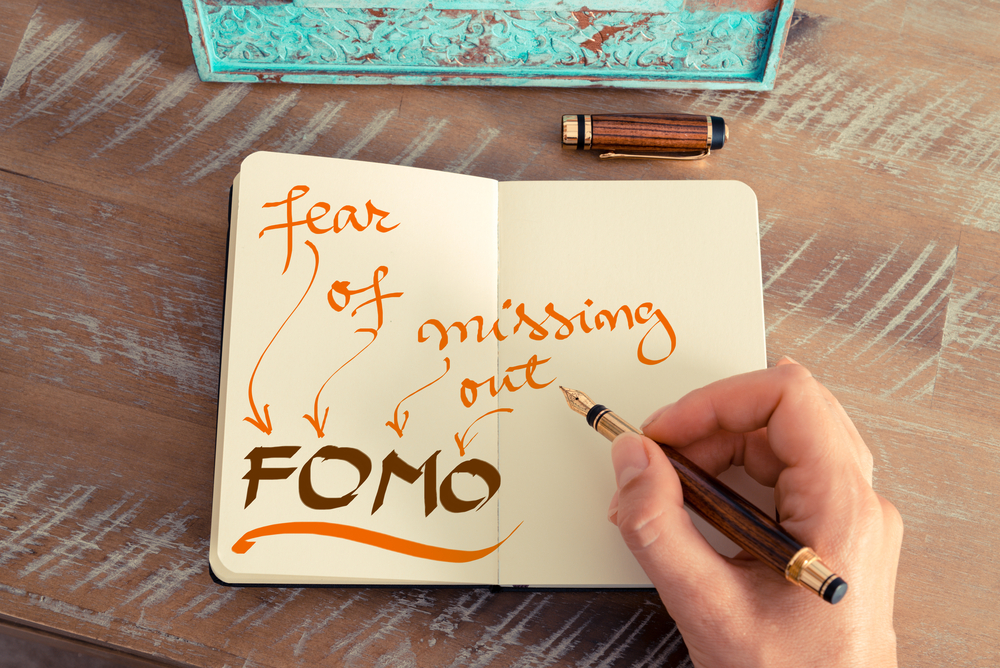 fear
of
missing
out
FOMO